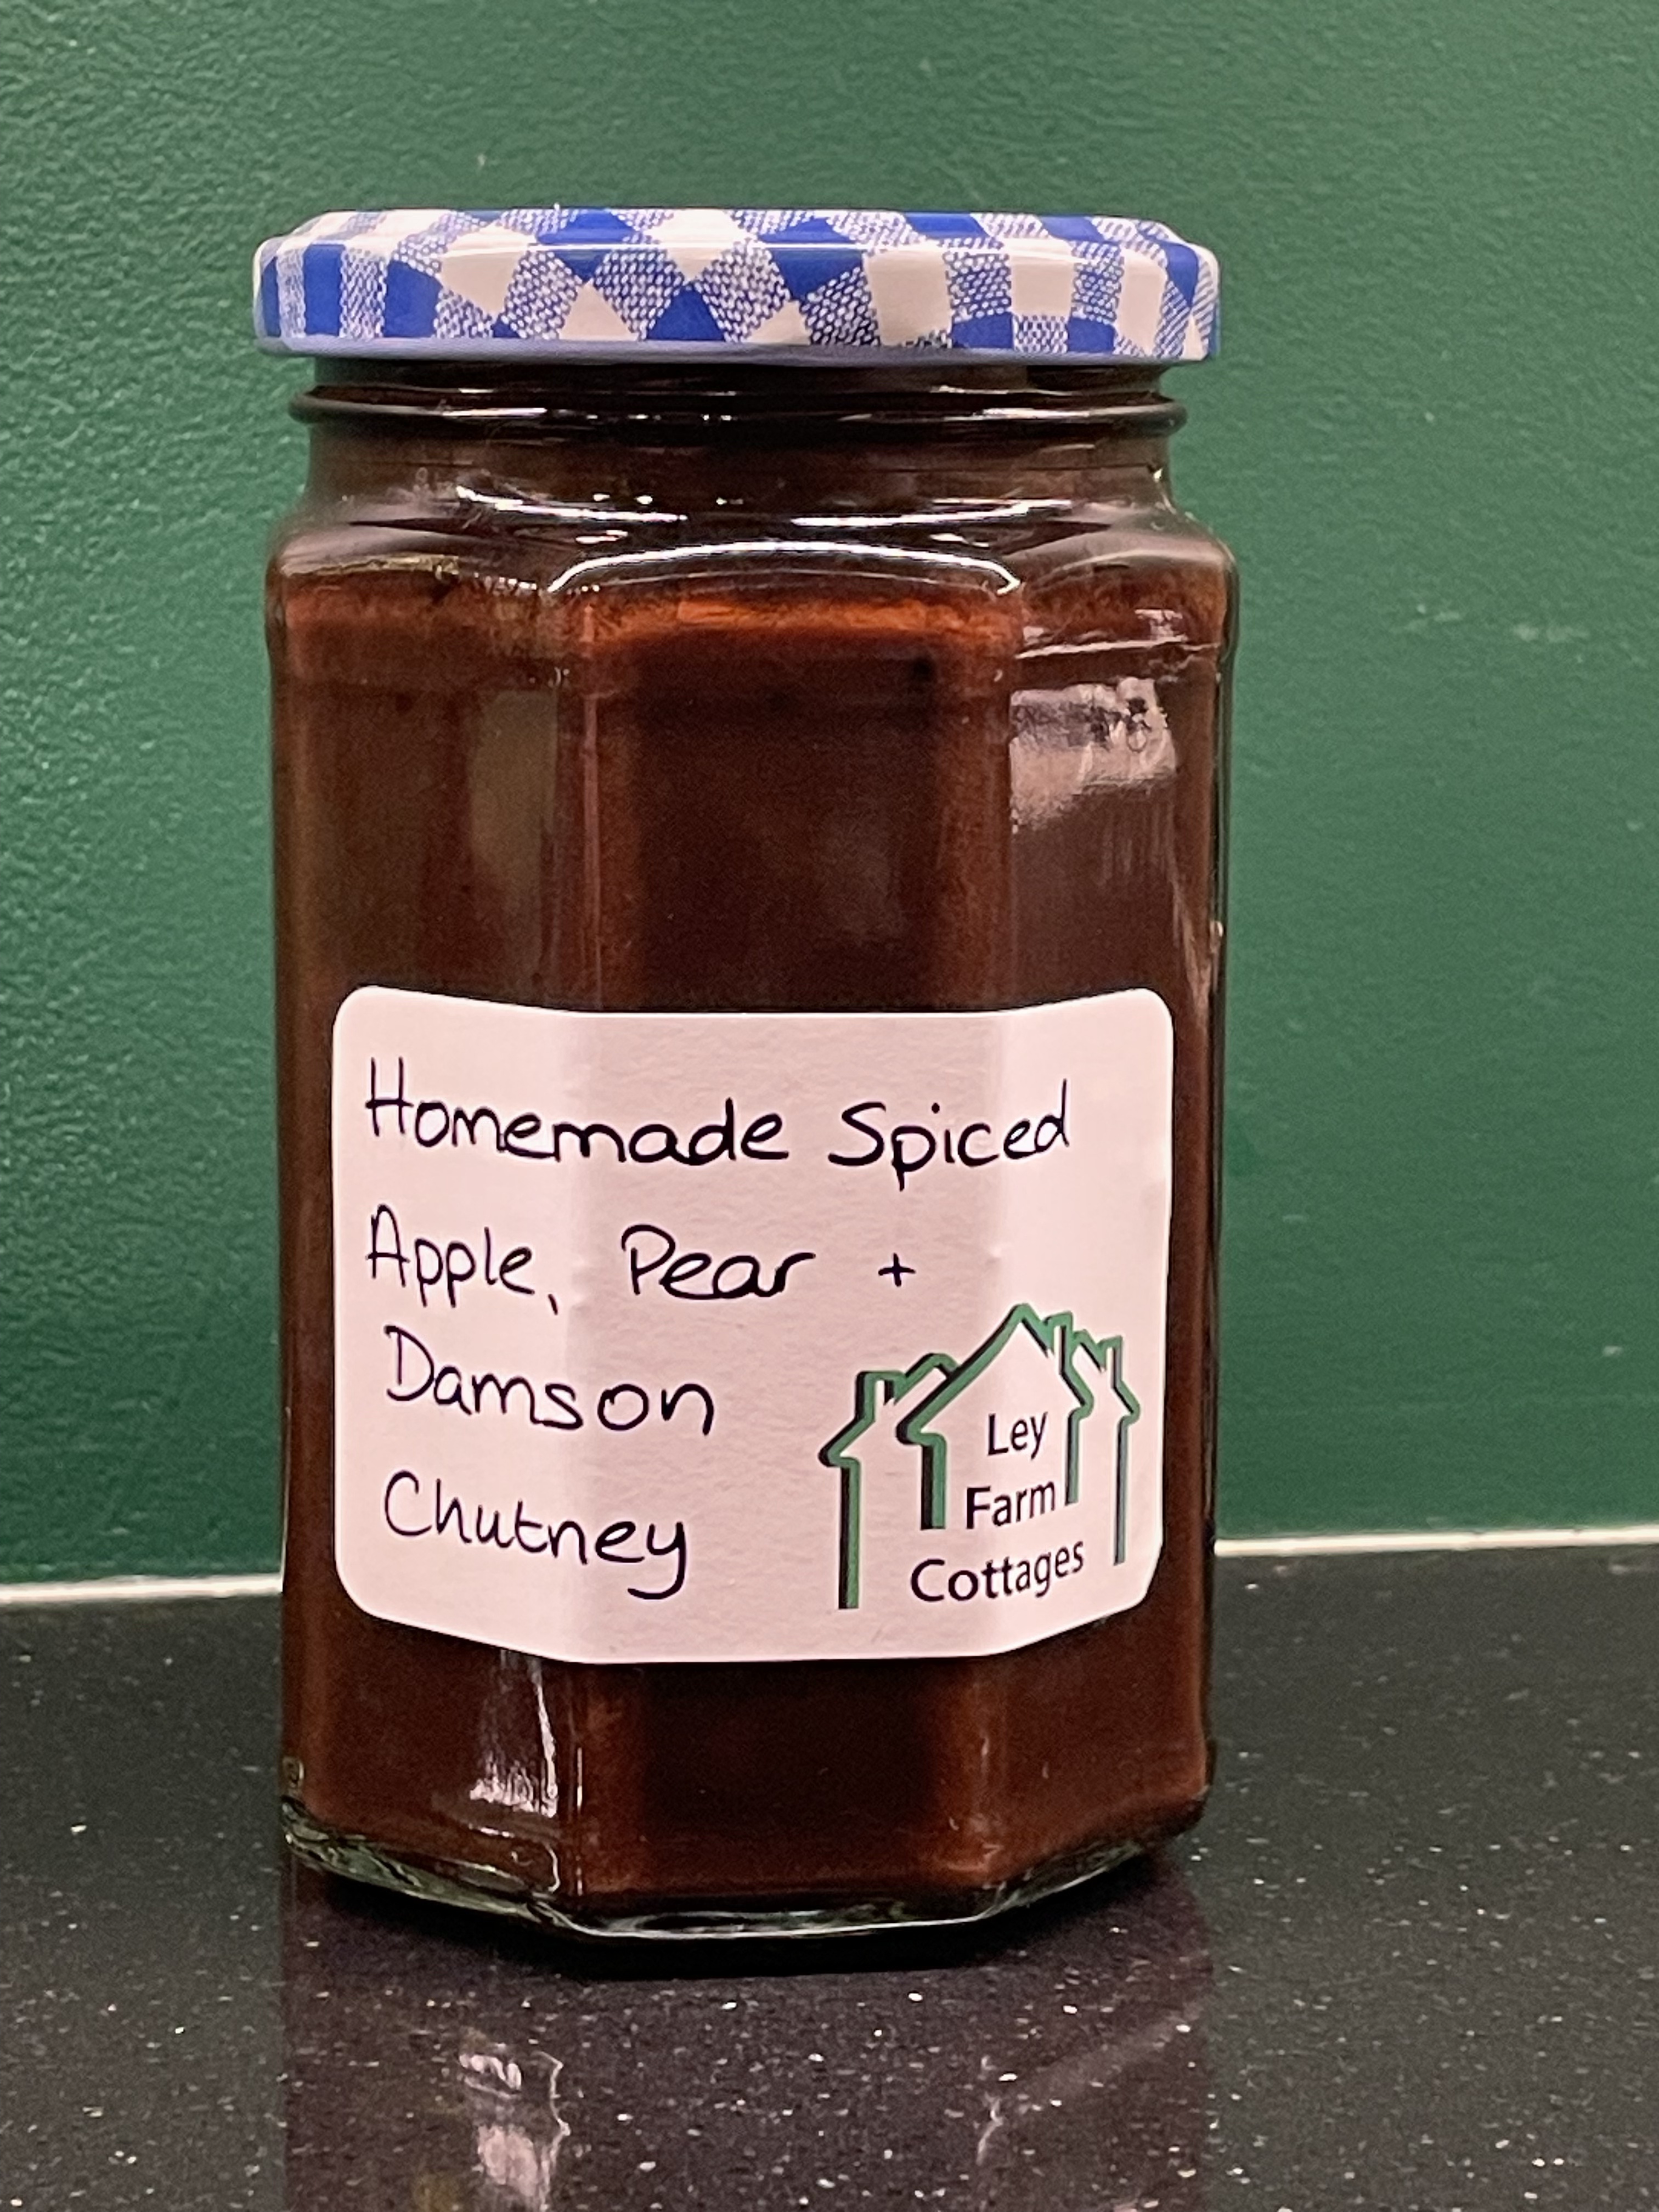 Homemade Spiced
Apple, Pear +
Damson
Chutney
Ley
Farm
Cottages